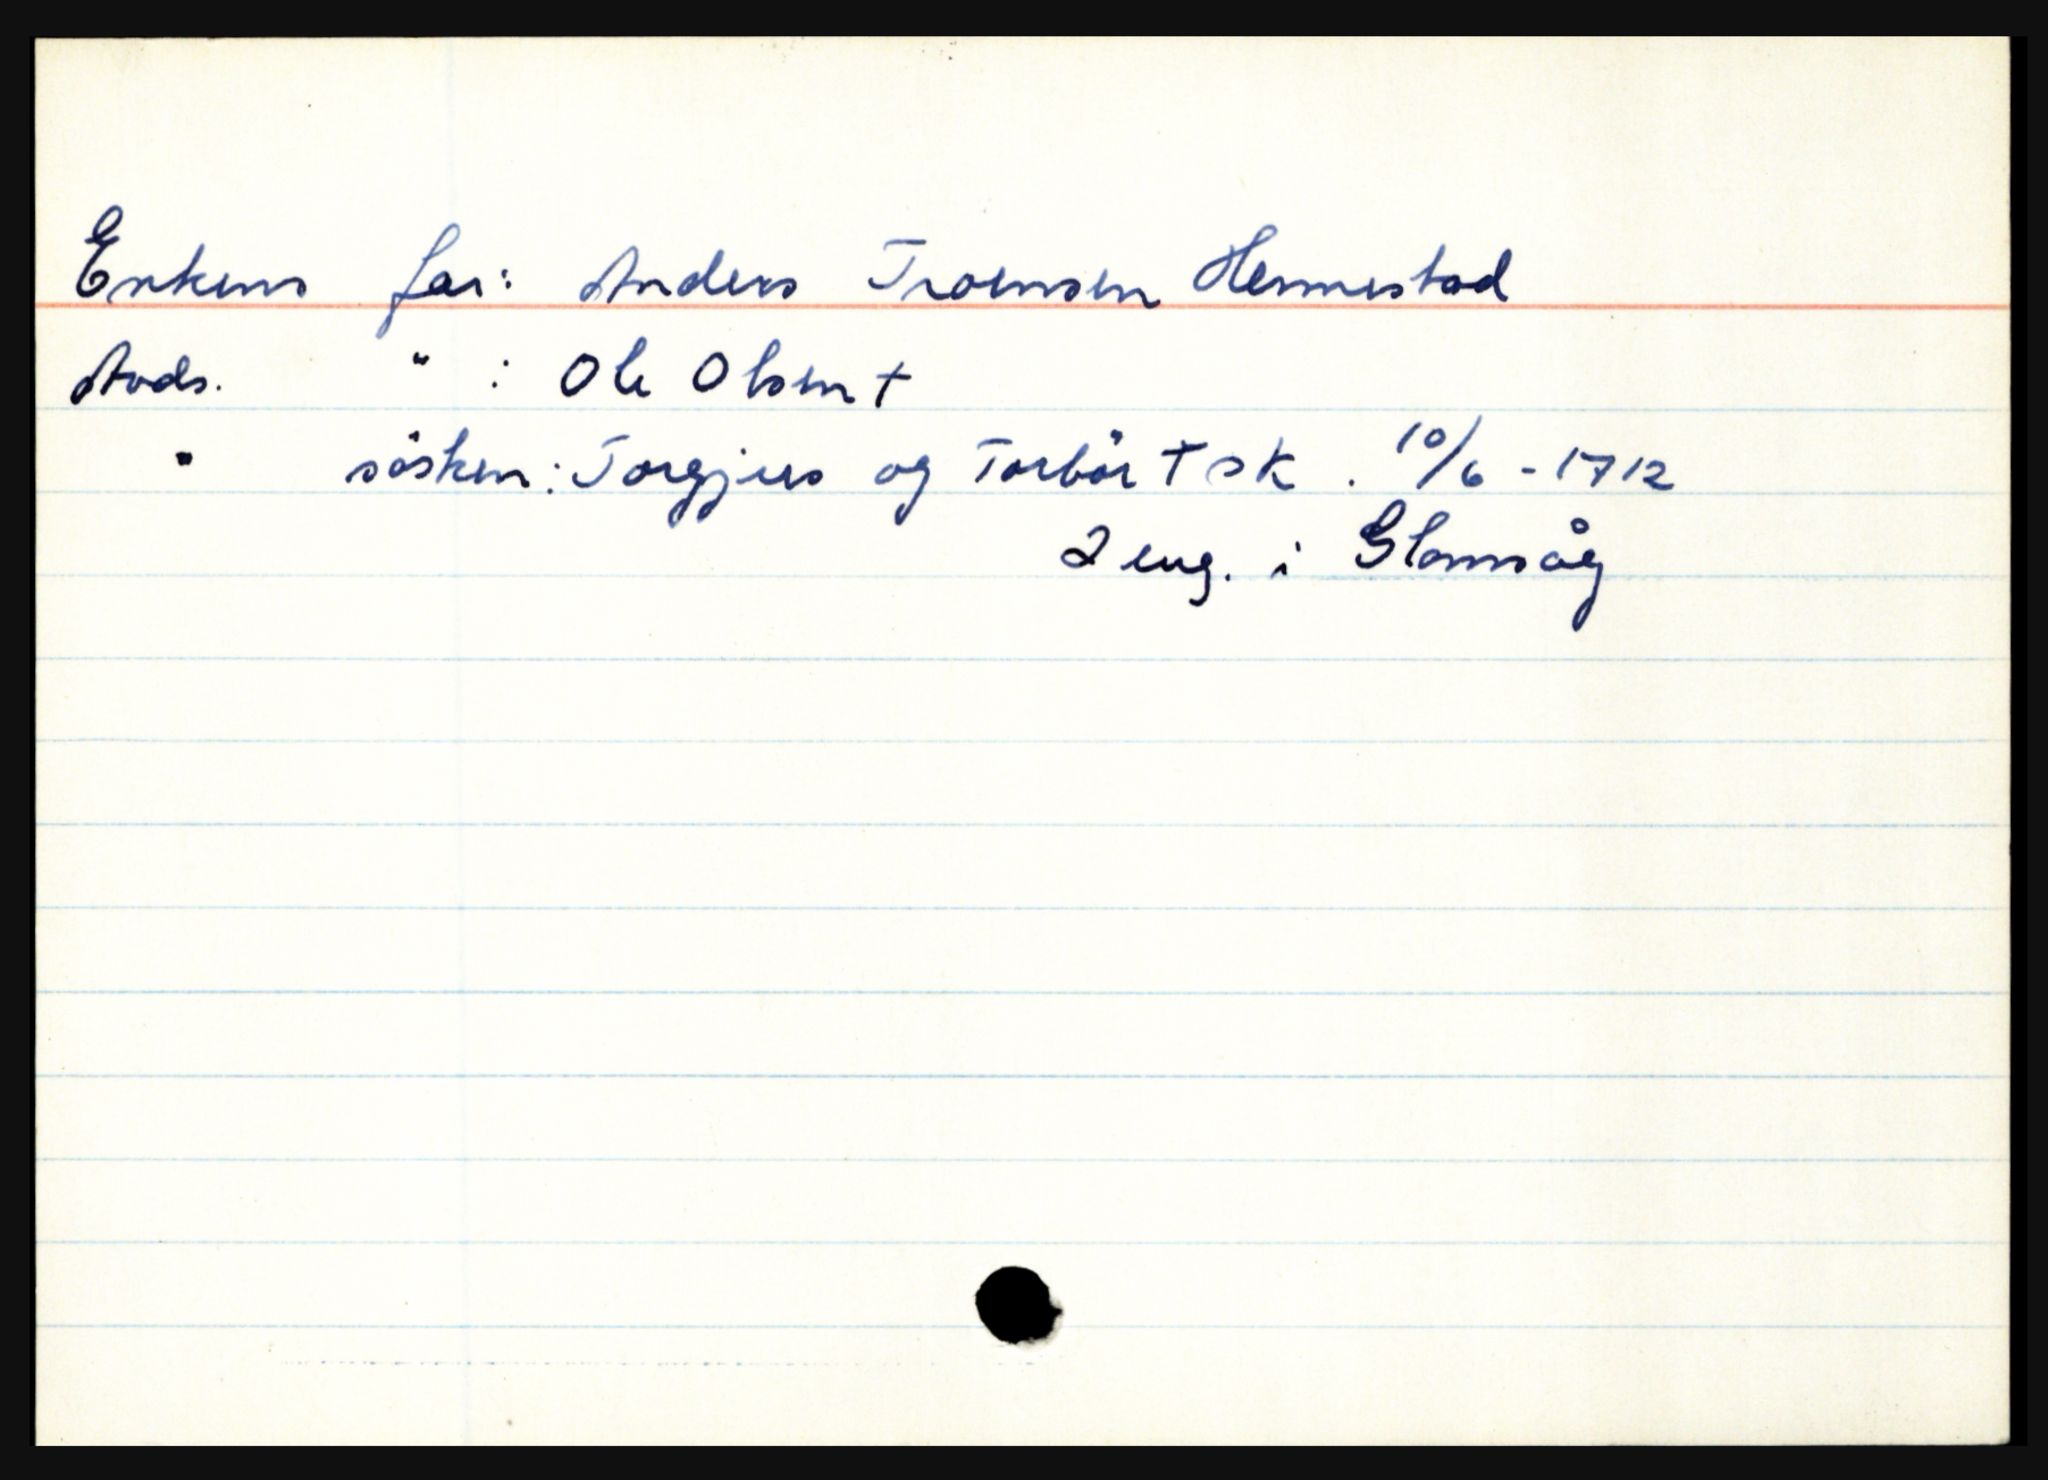 Enkens far: Anders Troensen Hennestad
Avds. " : Ole Olsen †
" søsken: Torgjus og Torbör † sk. 10/6 - 1712
2 eng. i Glomsåg